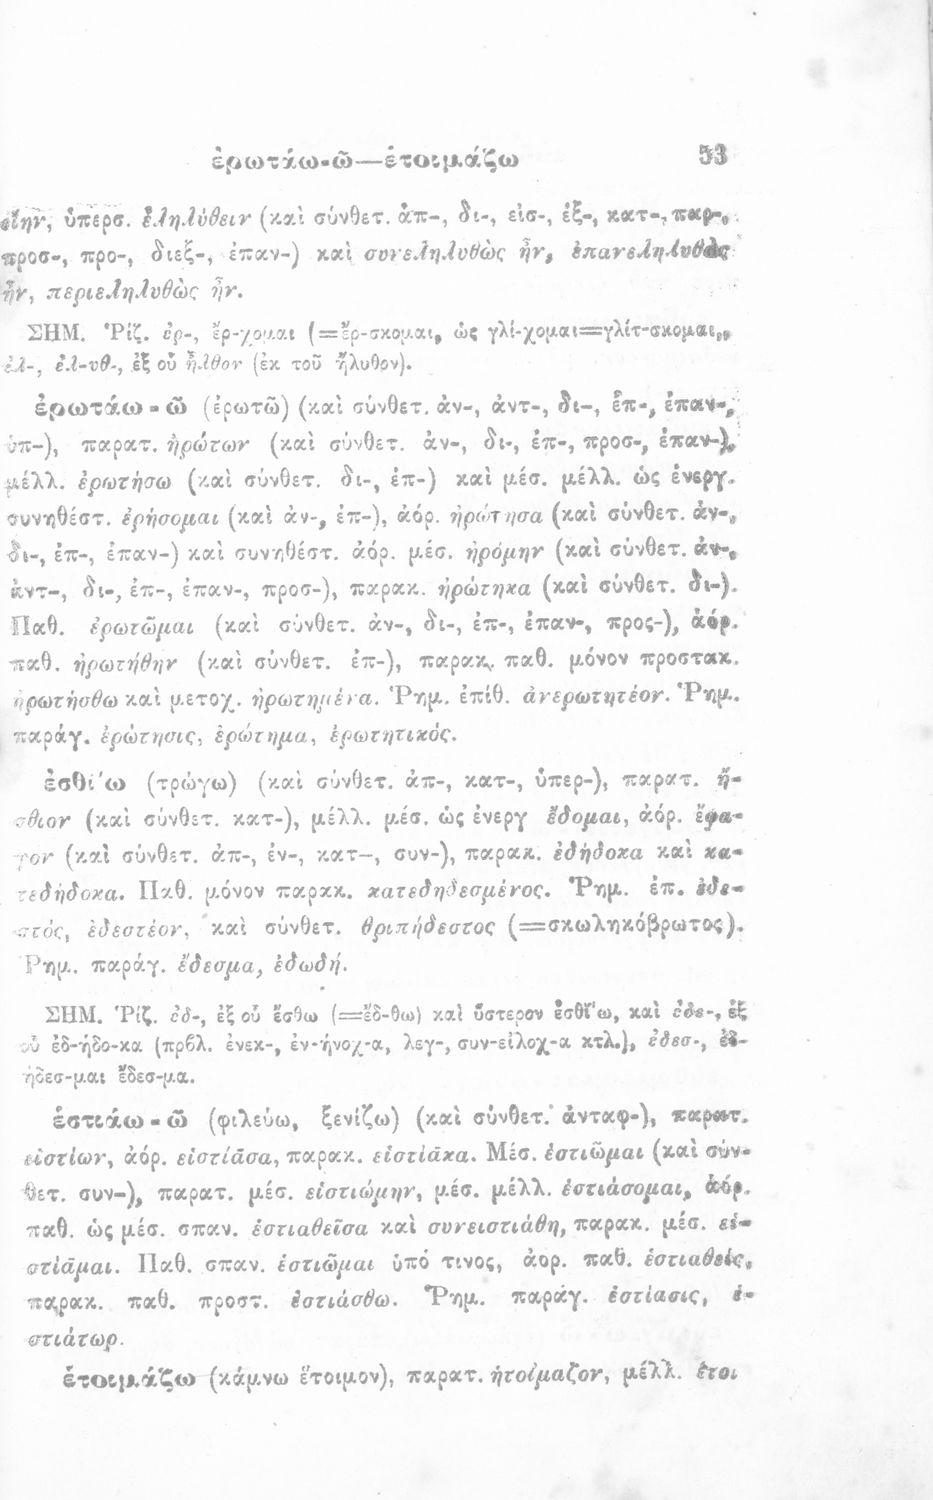 ἐρωτάω-ῶ—ἑτοιμάζω 53
εἴην, ὑπερσ. ἐληλύθειν (καὶ σύνθετ. ἀπ-, δι-, εἰσ-, ἐξ-, κατ-, παρ-,
προσ-, προ-, διεξ-, ἐπαν-) καὶ συνεληλυθὼς ἦν, ἐπανεληλυθὼς
ἦν, περιεληλυθὼς ἦν.
ΣΗΜ. Ῥίζ. ἐρ-, ἔρ-χομαι (=ἔρ-σκομαι, ὡς γλί-χομαι=γλίτ-σκομαι,
ἐλ-, ἐλ-υθ-, ἐξ οὗ ἦλθον (ἐκ τοῦ ἤλυθον).
ἐρωτάω-ῶ (ἐρωτῶ) (καὶ σύνθετ. ἀν-, ἀντ-, δι-, ἐπ-, ἐπαν-,
ὑπ-), παρατ. ἠρώτων (καὶ σύνθετ. ἀν-, δι-, ἐπ-, προσ-, ἐπαν-),
μέλλ. ἐρωτήσω (καὶ σύνθετ. δι-, ἐπ-) καὶ μέσ. μέλλ. ὡς ἐνεργ.
συνηθέστ. ἐρήσομαι (καὶ ἀν-, ἐπ-), ἀόρ. ἠρώτησα (καὶ σύνθετ. ἀν-,
δι-, ἐπ-, ἐπαν-) καὶ συνηθέστ. ἀόρ. μέσ. ἠρόμην (καὶ σύνθετ. ἀν-,
ἀντ-, δι-, ἐπ-, ἐπαν-, προσ-), παρακ. ἠρώτηκα (καὶ σύνθετ. δι-).
Παθ. ἐρωτῶμαι (καὶ σύνθετ. ἀν-, δι-, ἐπ-, ἐπαν-, προς-), ἀόρ.
παθ. ἠρωτήθην (καὶ σύνθετ. ἐπ-), παρακ. παθ. μόνον προστακ.
ἠρωτήσθω καὶ μετοχ. ἠρωτημένα. Ῥημ. ἐπίθ. ἀνερωτητέον. Ῥημ.
παράγ. ἐρώτησις, ἐρώτημα, ἐρωτητικός.
ἐσθίω (τρώγω) (καὶ σύνθετ. ἀπ-, κατ-, ὑπερ-), παρατ. ἤ-
σθιον (καὶ σύνθετ. κατ-), μέλλ. μέσ. ὡς ἐνεργ ἔδομαι, ἀόρ. ἔφα-
γον (καὶ σύνθετ. ἀπ-, ἐν-, κατ-, συν-), παρακ. ἐδήδοκα καὶ κα-
τεδήδοκα. Παθ. μόνον παρακ. κατεδηδεσμένος. Ῥημ. ἐπ. ἐδε-
στός, ἐδεστέον, καὶ σύνθετ. θριπήδεστος (=σκωληκόβρωτος).
Ῥημ. παράγ. ἔδεσμα, ἐδωδή.
ΣΗΜ. Ῥίζ. ἐδ-, ἐξ οὗ ἔσθω (=ἔδ-θω) καὶ ὕστερον ἐσθίω, καὶ ἐδε-, ἐξ
οὗ ἐδ-ήδο-κα (πρβλ. ἐνεκ-, ἐν-ήνοχ-α, λεγ-, συν-είλοχ-α κτλ.), ἐδεσ-, ἐδ-
ήδεσ-μαι ἔδεσ-μα.
ἑστιάω-ῶ (φιλεύω, ξενίζω) (καὶ σύνθετ. ἀνταφ-), παρατ.
εἱστίων, ἀόρ. εἱστίᾱσα, παρακ. εἱστίᾱκα. Μέσ. ἑστιῶμαι (καὶ σύν-
θετ. συν-), παρατ. μέσ. εἱστιώμην, μέσ. μέλλ. ἑστιάσομαι, ἀόρ.
παθ. ὡς μέσ. σπαν. ἑστιαθεῖσα καὶ συνειστιάθη, παρακ. μέσ. εἱ-
στίᾱμαι. Παθ. σπαν. ἑστιῶμαι ὑπό τινος, ἀορ. παθ. ἑστιαθείς,
παρακ. παθ. προστ. ἑστιάσθω. Ῥημ. παράγ. ἑστίασις, ἑ-
στιάτωρ.
ἑτοιμάζω (κάμνω ἕτοιμον), παρατ. ἡτοίμαζον, μέλλ. ἑτοι